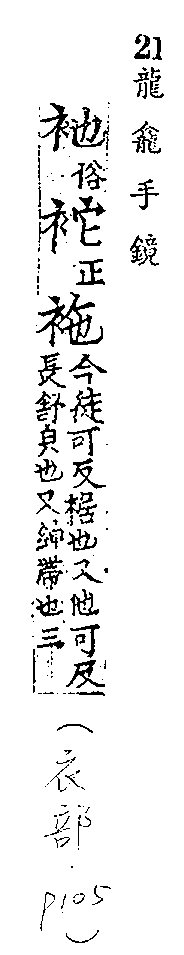 21龍龕手鏡
衪俗袉正袘今徒可反裾也又他可反
長舒皃也又紳帶也三
(衣部．P105)